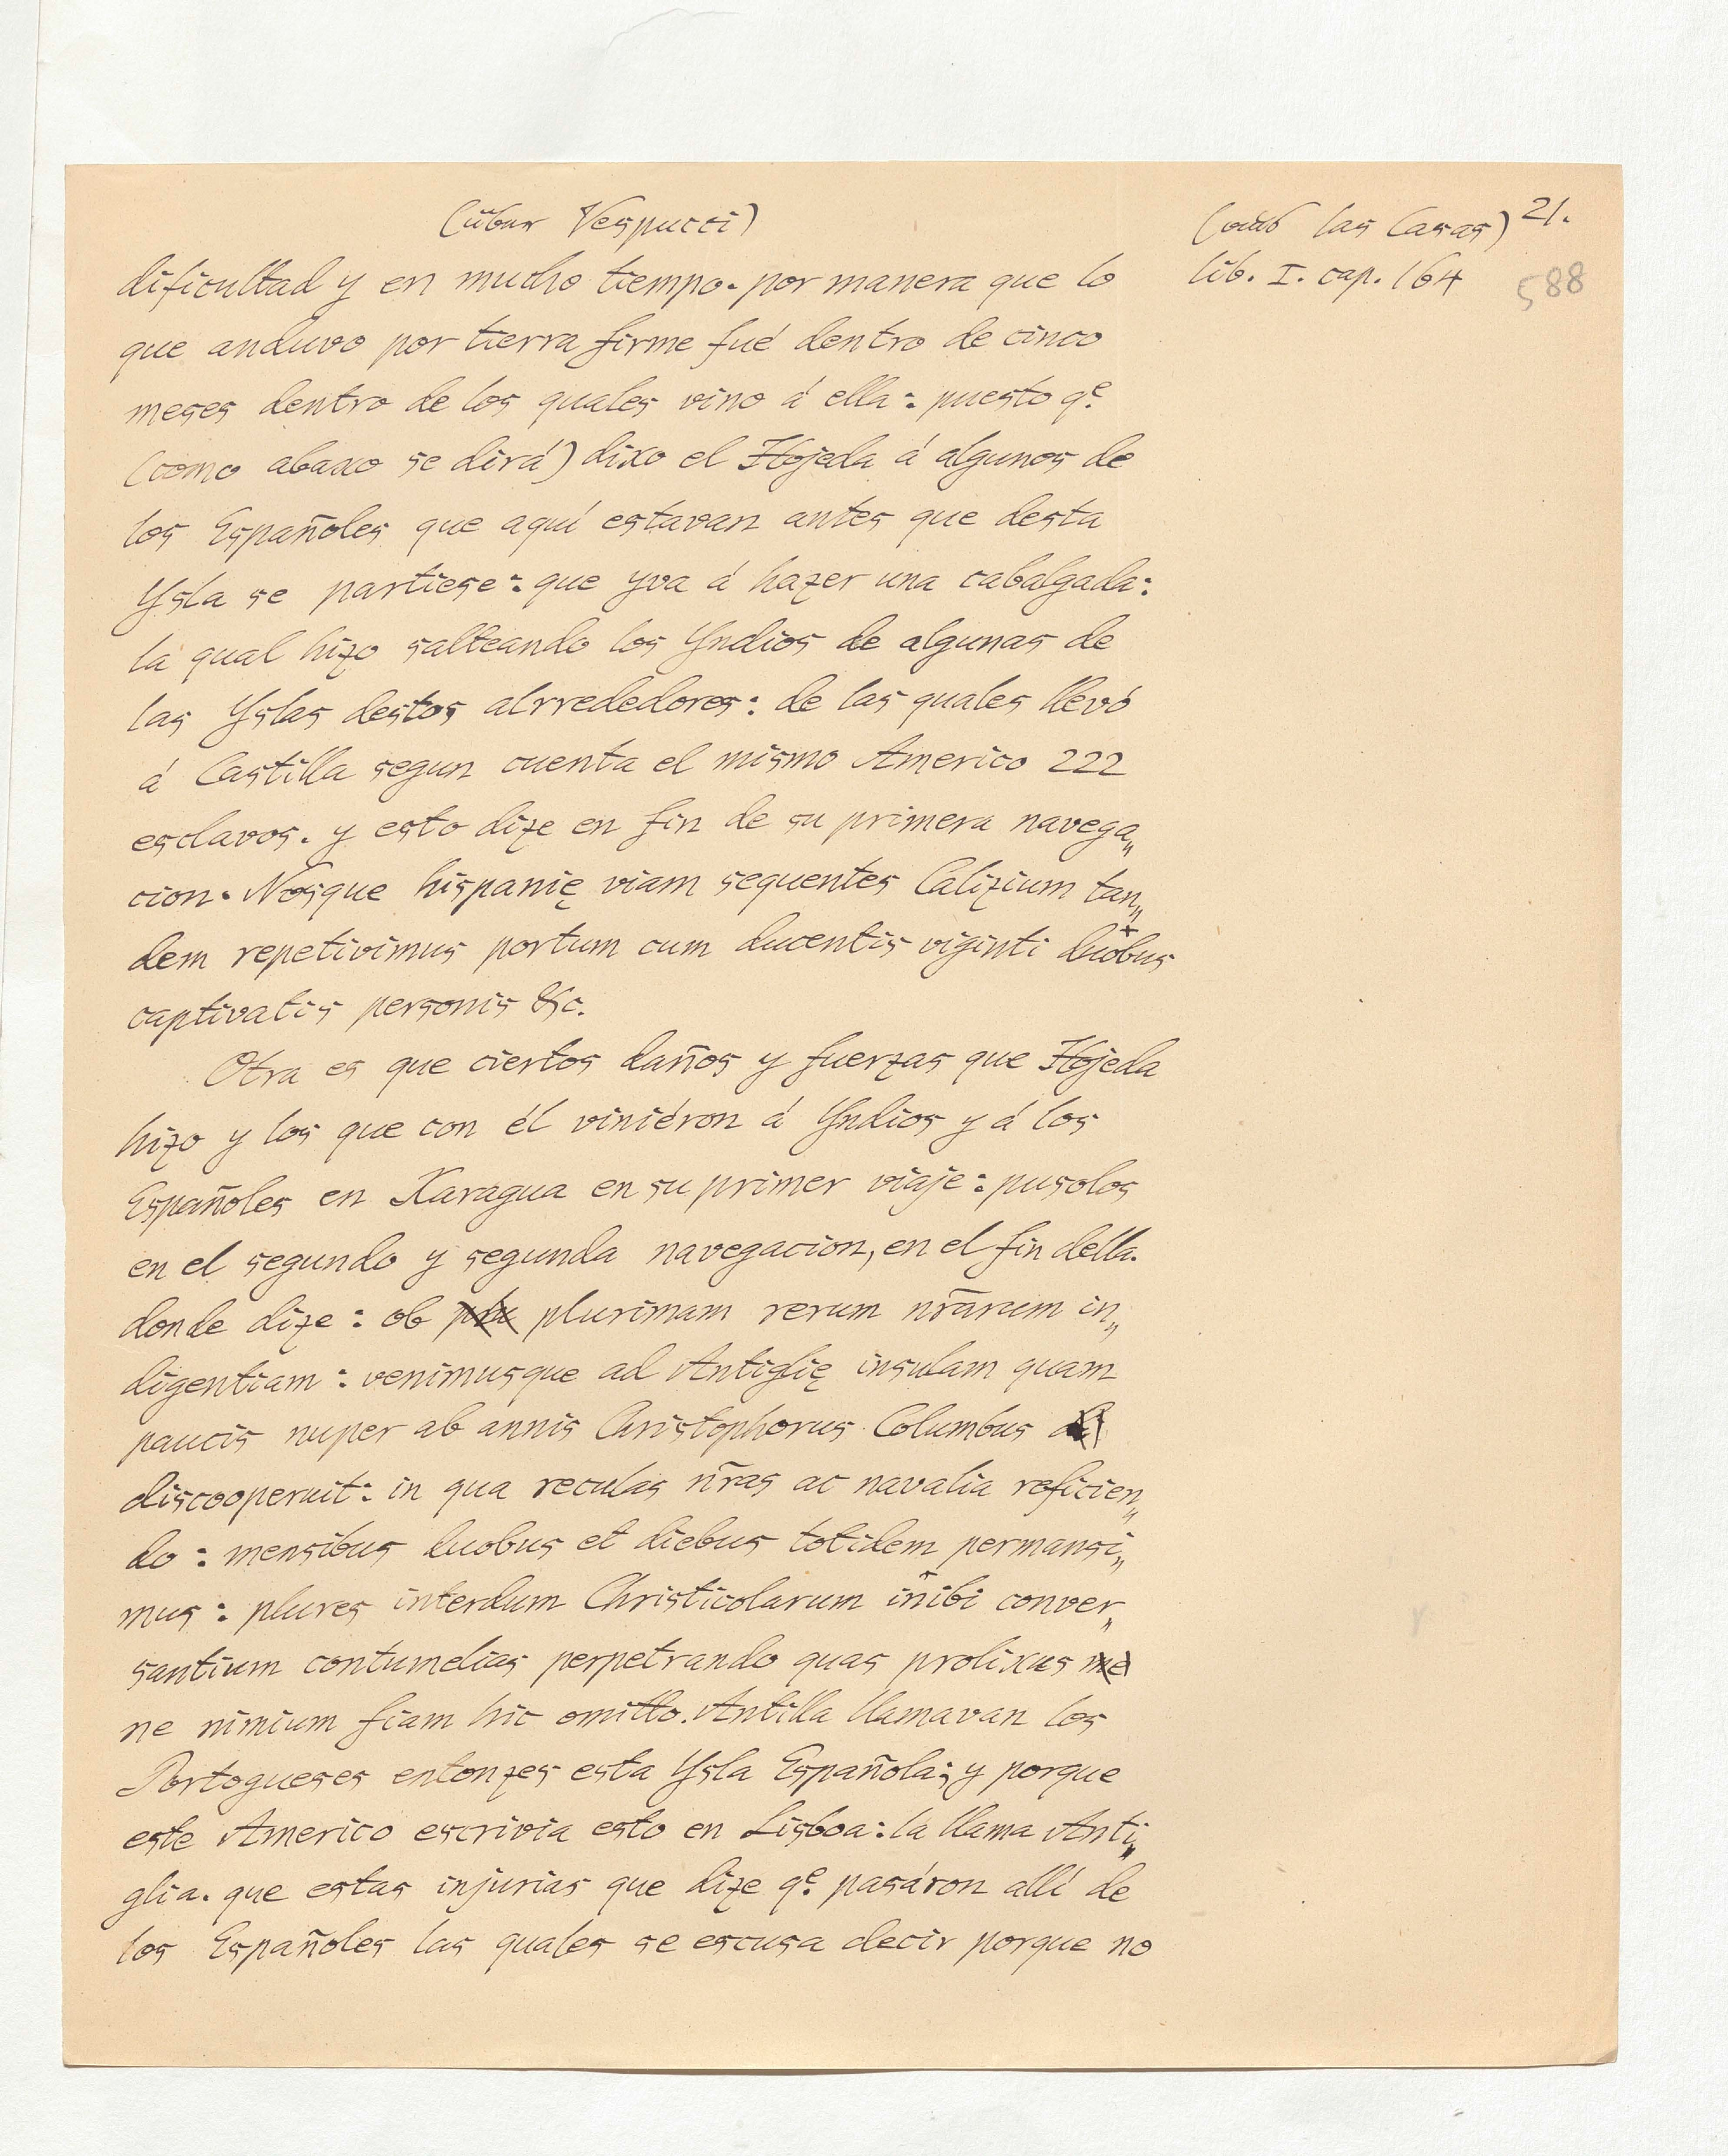 (über Vespucci)
(aus las Casas) 21.
lib. I. cap. 164
588
dificultad y en mucho tiempo. por manera que lo
que anduvo por tierra firme fué dentro de cinco
meses dentro de los quales vino á ella: puesto qe.
(como abaxo se dirá) dixo el Hojeda á algunos de
los Españoles que aquí estavan antes que desta
Ysla se partiese: que yva á hazer una cabalgada:
la qual hizo salteando los Yndios de algunas de
las Yslas destos alrrededores: de las quales llevó
á Castilla segun cuenta el mismo Americo 222
esclavos. y esto dize en fin de su primera navega„
cion. Nosque hispanię viam sequentes Calizium tan„
dem repetivimus portum cum ducentis viginti duobus
captivatis personis &c.
Otra es que ciertos daños y fuerzas que Hojeda
hizo y los que con él viniéron á Yndios y á los
Españoles en Xaragua en su primer viaje: pusolos
en el segundo y segunda navegacion, en el fin della.
donde dize: ob plu plurimam rerum nr̃arum in„
digentiam: venimusque ad Antiglię insulam quam
paucis nuper ab annis Christophorus Columbus
discooperuit: in qua reculas nr̃as ac navalia reficien„
do: mensibus duobus et diebus totidem permansi„
mus: plures interdum Christicolarum inibi conver„
santium contumelias perpetrando quas prolixus me
ne nimium fiam hic omitto. Antilla llamavan los
Portogueses entonzes esta Ysla Española; y porque
este Americo escrivia esto en Lisboa: la llama Anti„
glia. que estas injurias que dize qe. pasáron allí de
los Españoles las quales se escusa decir porque no